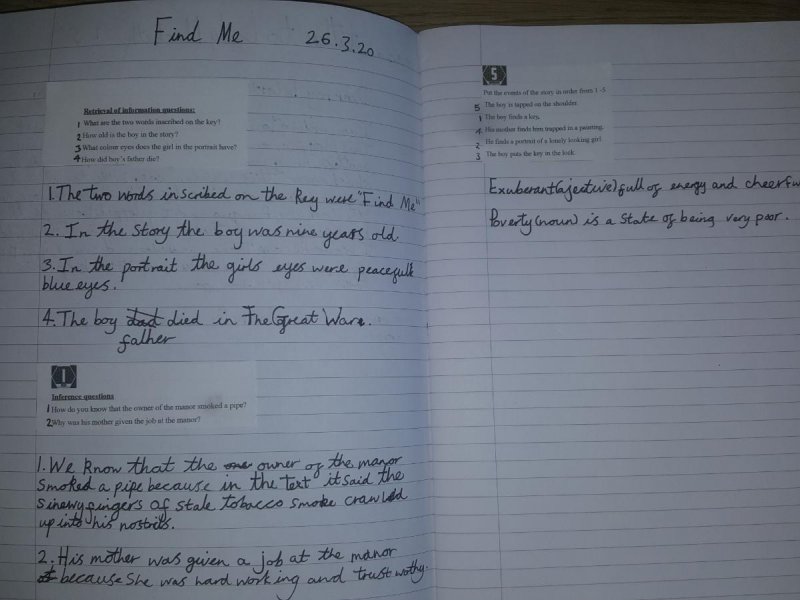 Find Me 26.3.20
Retrieval of information questions:
1 What are the two words inscribed on the key?
2 How old is the boy in the story?
3 What colour eyes does the girl in the portrait have?
4 How did boy's father die?
1. The two words inscribed on the key were "Find Me"
2. In the story the boy was nine years old.
3. In the portrait the girls eyes were peacefull
blue eyes.
4. The boy dad died in The Great War.
father
1
Inference questions
1 How do you know that the owner of the manor smoked a pipe?
2 Why was his mother given the job at the manor?
1. We know that the owner of the manor
smoked a pipe because in the text it said the
sinewy fingers of stale tobacco smoke crawled
up into his nostrils.
2. His mother was given a job at the manor
because she was hard working and trustwothy.
5
Put the events of the story in order from 1 -5
5 The boy is tapped on the shoulder.
1 The boy finds a key.
4 His mother finds him trapped in a painting.
2 He finds a portrait of a lonely looking girl.
3 The boy puts the key in the lock.
Exuberant(ajective) full of energy and cheerfu
Poverty(noun) is a state of being very poor.